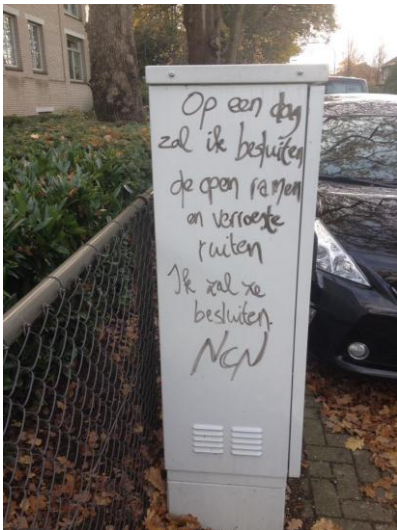 Op een dag
zal ik besluiten
de open ramen
en verroeste
ruiten
Ik zal ze
besluiten.
NCN